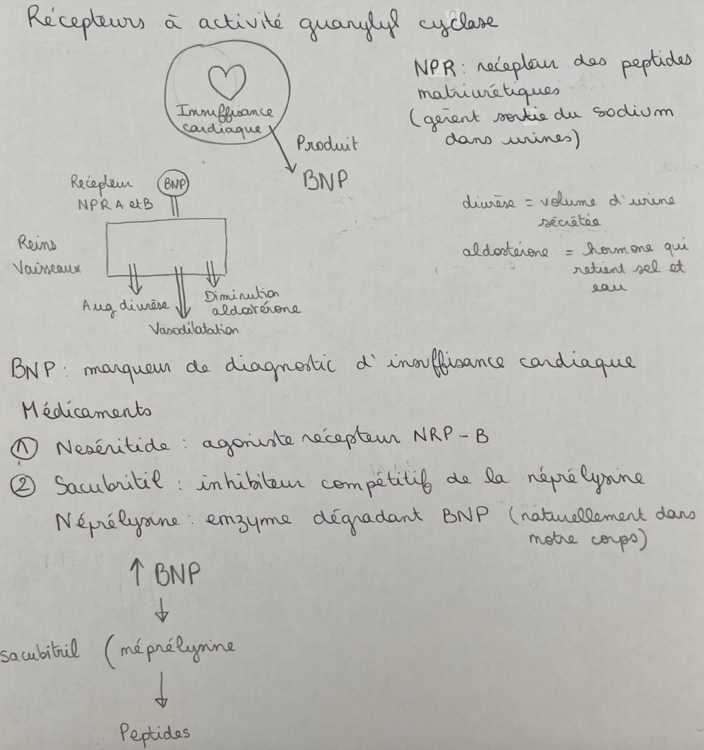 Récepteurs à activité guanylyl cyclase
Insuffisance
cardiaque
Produit
BNP
NPR : récepteur des peptides
natriurétiques
(gèrent sortie du sodium
dans urines)
Récepteur
NPR A et B
BNP
Reins
Vaisseaux
Aug diurèse
Vasodilatation
Diminution
aldostérone
diurèse = volume d'urine
sécrétée
aldostérone = hormone qui
retient sel et
eau
BNP : marqueur de diagnostic d'insuffisance cardiaque
Médicaments
① Neséritide : agoniste récepteur NRP-B
② Sacubritil : inhibiteur compétitif de la néprélysine
Néprélysine : enzyme dégradant BNP (naturellement dans
notre corps)
↑ BNP
sacubitril (néprélysine
Peptides